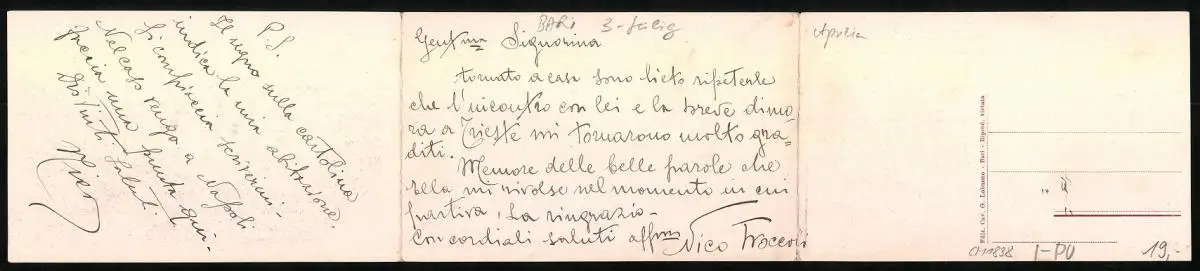 P.S.
Il segno sulla cartolina
indica la mia abitazione.
Si compiaccia scrivermi -
Nel caso venga a Napoli
faccia una punta qui -
Distinti saluti
Nico
BARI 3-fälig
Gentma Signorina
tornato a casa sono lieto ripeterle
che l'incontro con lei e la breve dimo=
ra a Trieste mi tornarono molto gra=
diti.
Memore delle belle parole che
ella mi rivolse nel momento in cui
partiva, La ringrazio -
Con cordiali saluti affmo Nico Troccoli
Apulia
Ediz. Cav. G. Lobuono - Bari - Ripod. vietata
CH11838 I-PU 19,-